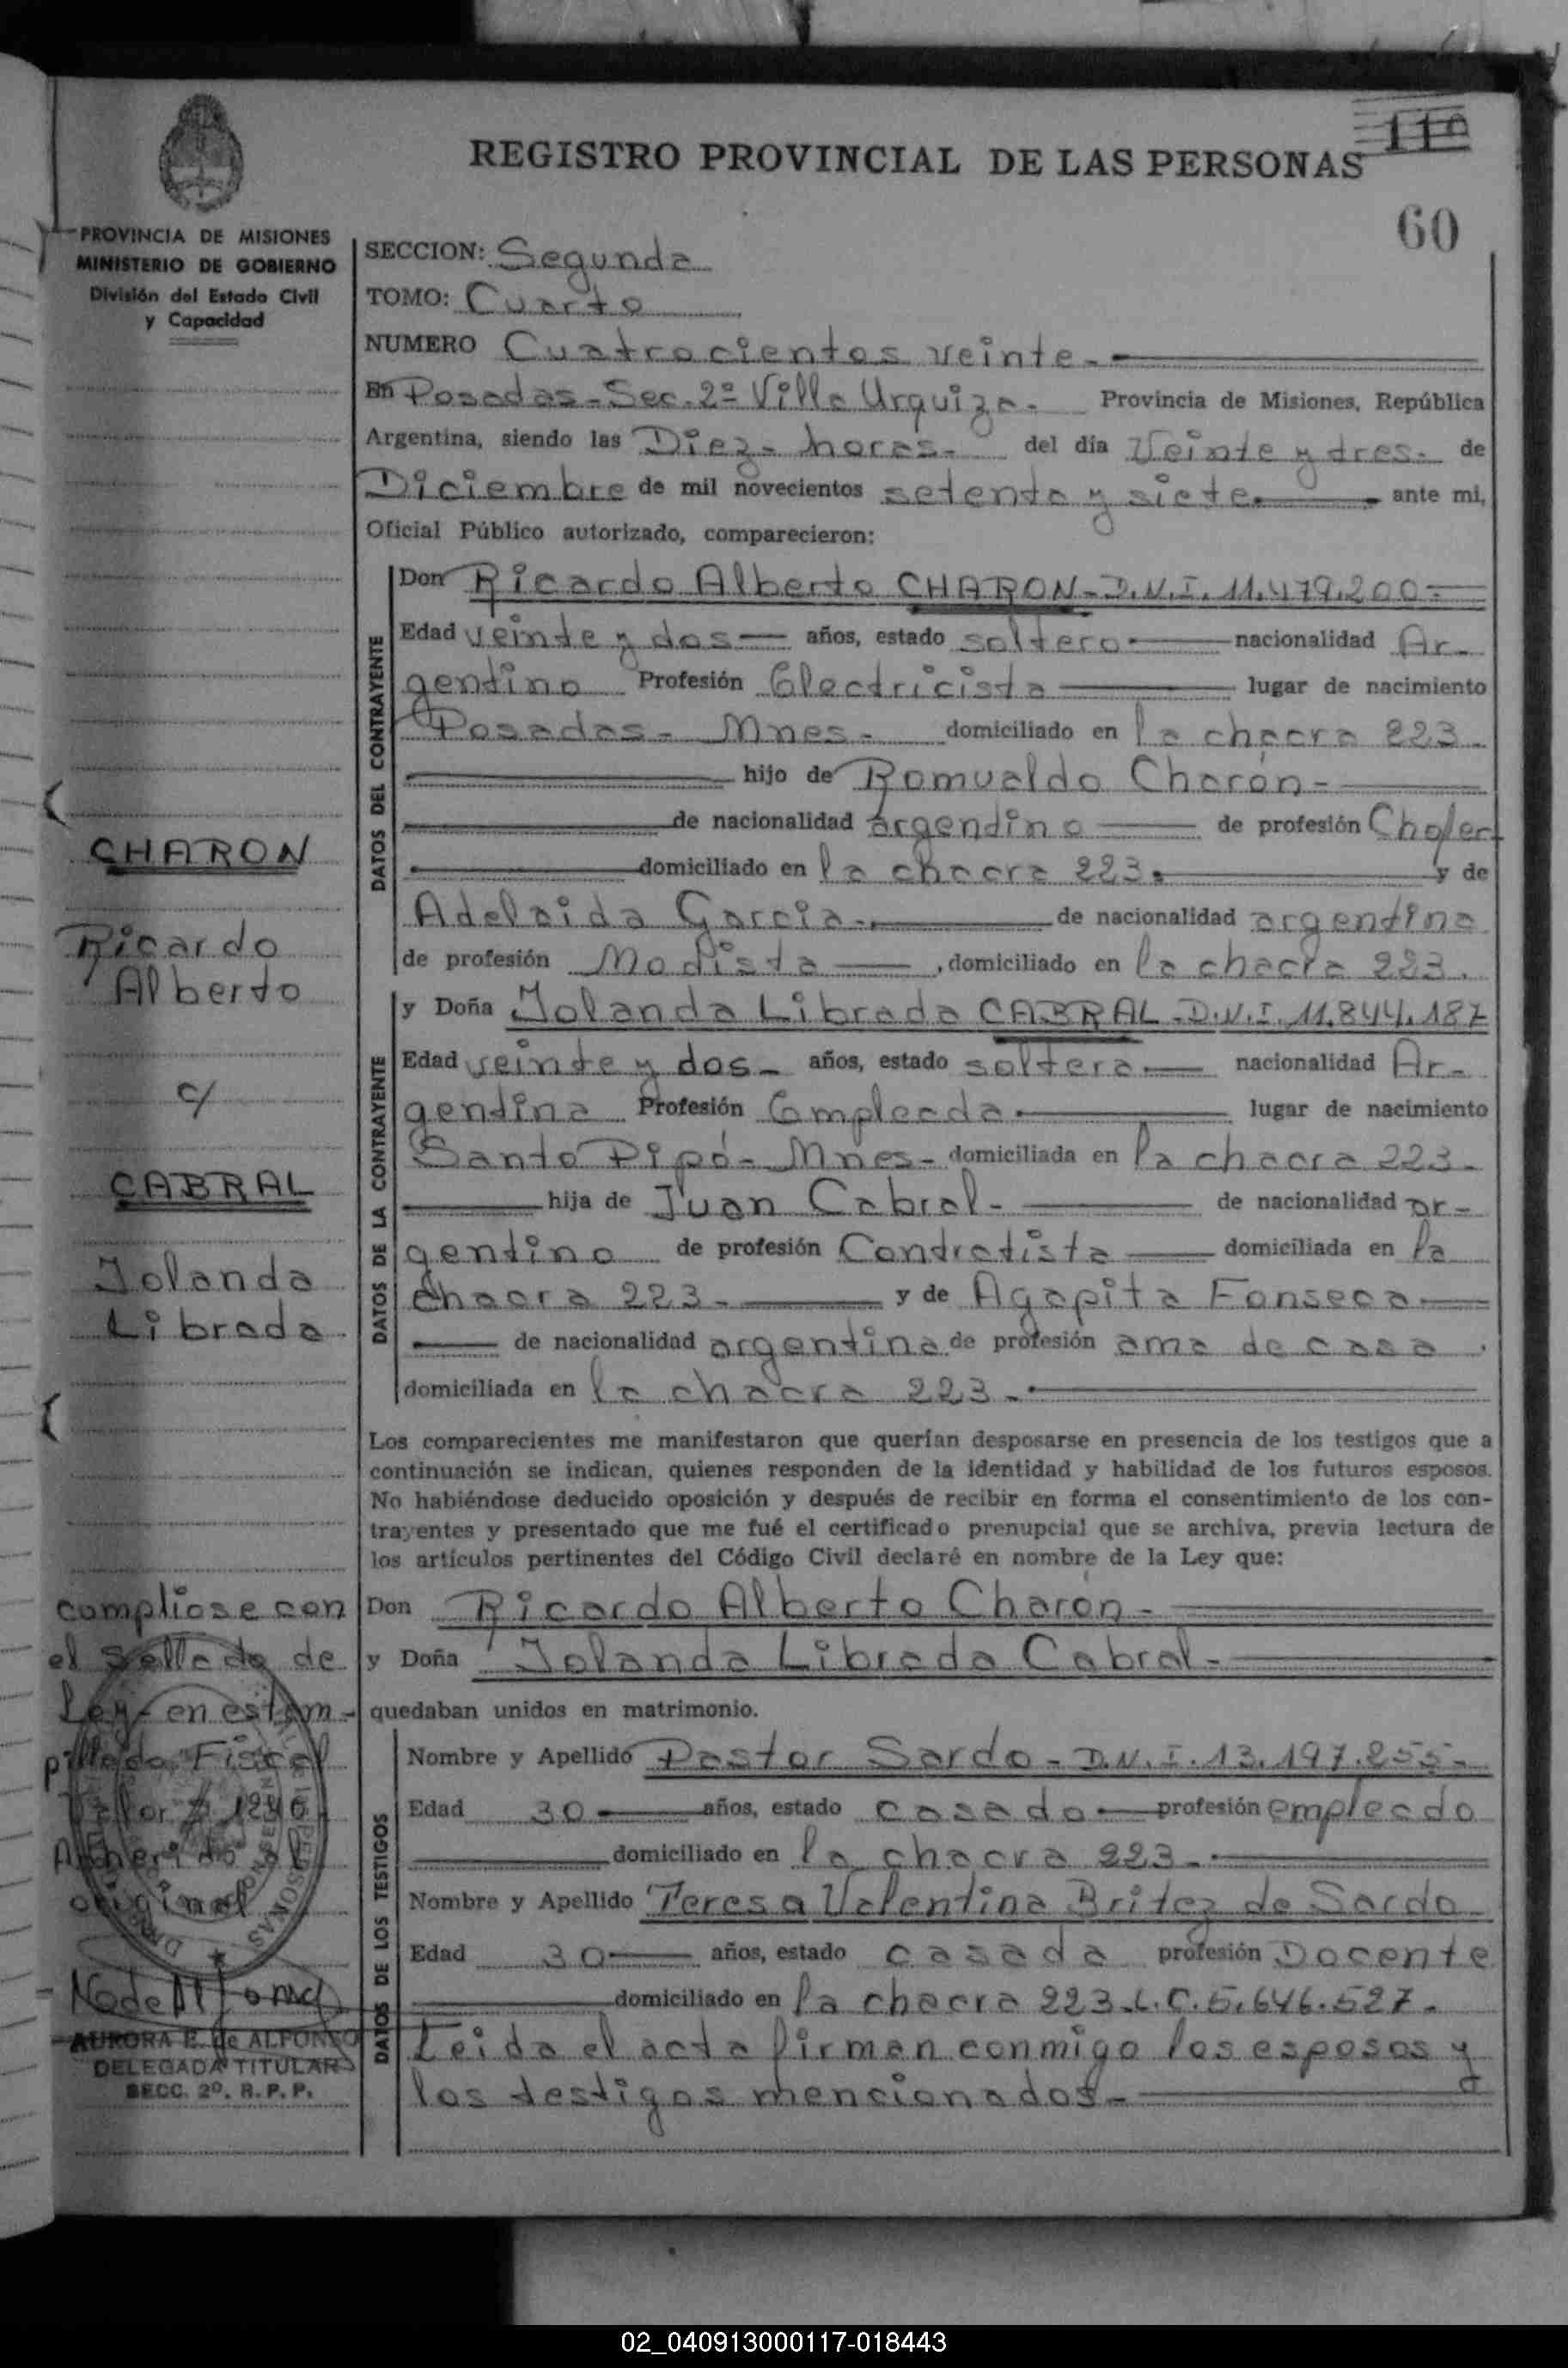 REGISTRO PROVINCIAL DE LAS PERSONAS
110
60
PROVINCIA DE MISIONES
MINISTERIO DE GOBIERNO
División del Estado Civil
y Capacidad
SECCION: Segunda
TOMO: Cuarto
NUMERO Cuatrocientos veinte.-
En Posadas-Sec.2ª Villa Urquiza- Provincia de Misiones, República
Argentina, siendo las Diez- horas- del día Veinte y tres- de
Diciembre de mil novecientos setenta y siete.- ante mi,
Oficial Público autorizado, comparecieron:
DATOS DEL CONTRAYENTE
Don Ricardo Alberto CHARON-D.N.I. 11.479.200-
Edad veinte y dos- años, estado soltero- nacionalidad Ar-
gentino Profesión Electricista lugar de nacimiento
Posadas- Mnes- domiciliado en la chacra 223-
hijo de Romualdo Charón-
de nacionalidad argentino de profesión Chofer
domiciliado en la chacra 223. y de
Adelaida Garcia- de nacionalidad argentina
de profesión Modista , domiciliado en la chacra 223.
DATOS DE LA CONTRAYENTE
y Doña Iolanda Librada CABRAL-D.N.I. 11.844.187
Edad veinte y dos- años, estado soltera- nacionalidad Ar-
gentina Profesión Empleada- lugar de nacimiento
Santo Pipó- Mnes- domiciliada en la chacra 223-
hija de Juan Cabral- de nacionalidad ar-
gentino de profesión Contratista domiciliada en la
chacra 223- y de Agapita Fonseca-
de nacionalidad argentina de profesión ama de casa
domiciliada en la chacra 223-
Los comparecientes me manifestaron que querían desposarse en presencia de los testigos que a
continuación se indican, quienes responden de la identidad y habilidad de los futuros esposos.
No habiéndose deducido oposición y después de recibir en forma el consentimiento de los con-
trayentes y presentado que me fué el certificado prenupcial que se archiva, previa lectura de
los artículos pertinentes del Código Civil declaré en nombre de la Ley que:
Don Ricardo Alberto Charón-
y Doña Iolanda Librada Cabral-
quedaban unidos en matrimonio.
DATOS DE LOS TESTIGOS
Nombre y Apellido Pastor Sardo- D.N.I. 13.197.255-
Edad 30- años, estado casado- profesión empleado
domiciliado en la chacra 223-
Nombre y Apellido Teresa Valentina Britez de Sardo
Edad 30- años, estado casada profesión Docente
domiciliado en la chacra 223-L.C.5.646.527-
Leida el acta firman conmigo los esposos y
los testigos mencionados-
CHARON
Ricardo
Alberto
c/
CABRAL
Iolanda
Librada
cumpliose con
el sellado de
Ley- en estam-
pillado Fiscal
Valor $ 1240
Adherido al
original
AURORA E. de ALFONSO
DELEGADA TITULAR
SECC. 2º. R. P. P.
02_040913000117-018443